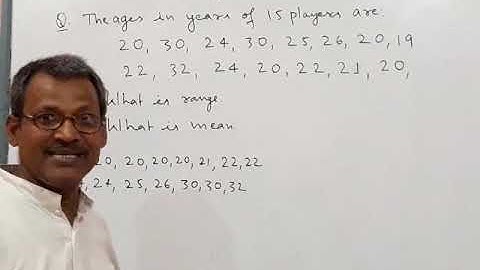 Q. The ages in years of 15 players are.
20, 30, 24, 30, 25, 26, 20, 19
22, 32, 24, 20, 22, 21, 20,
What is range.
What is mean
20, 20, 20, 20, 21, 22, 22
24, 25, 26, 30, 30, 32